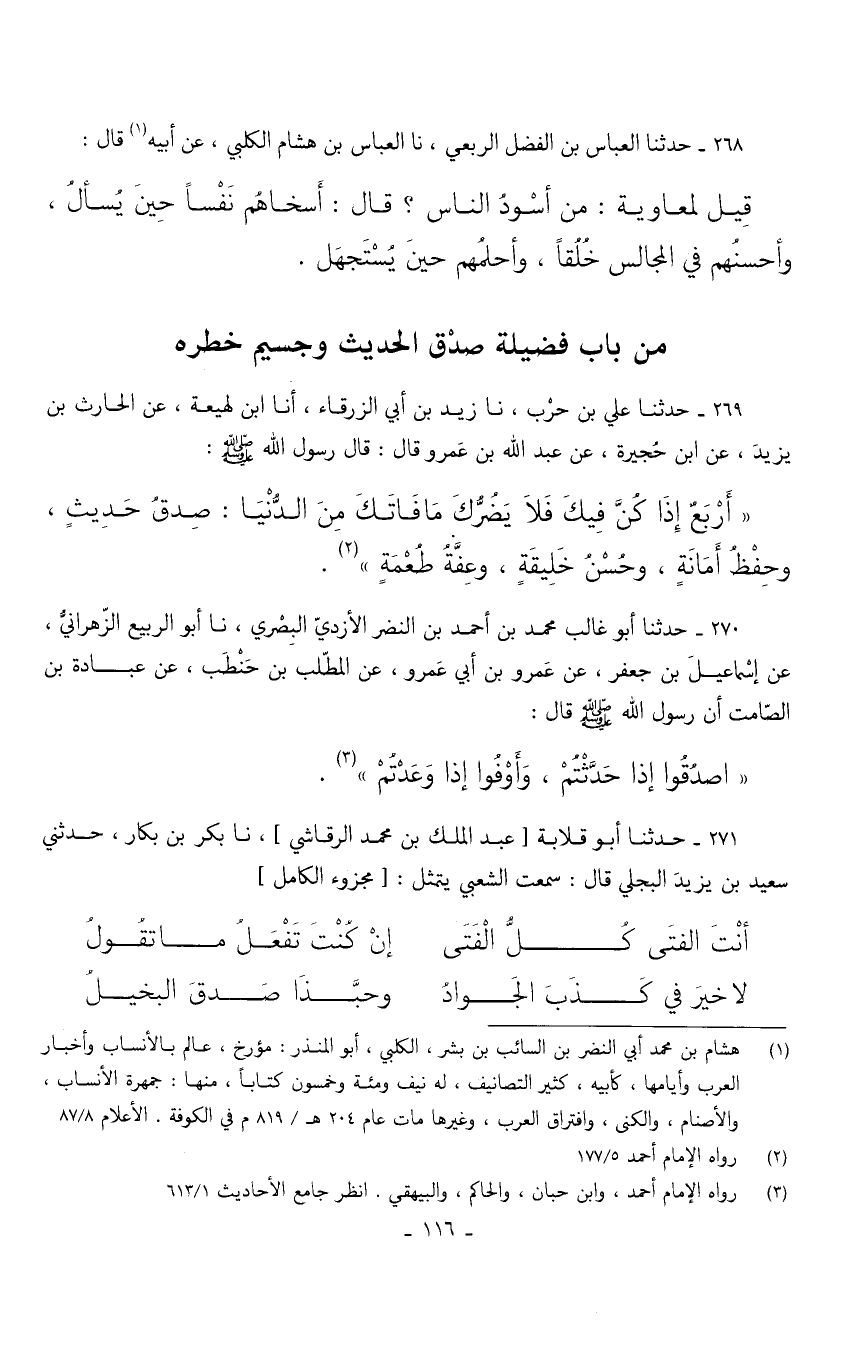 ٢٦٨ ـ حدثنا العباس بن الفضل الربعي ، نا العباس بن هشام الكلبي ، عن أبيه(١) قال :
قِيـل لمعـاويـة : من أسْودُ النـاس ؟ قـال : أَسخـاهُم نَفْسـاً حِينَ يُسـألُ ،
وأحسنُهم في المجالس خُلُقاً ، وأحلمُهم حينَ يُسْتَجهَل .
من باب فضيلة صدْق الحديث وجسيم خطره
٢٦٩ ـ حدثنـا علي بن حرْب ، نـا زيـد بن أبي الزرقـاء ، أنـا ابن لهيعـة ، عن الحارث بن
يزيدَ ، عن ابن حُجيرة ، عن عبد الله بن عَمرو قال : قال رسول الله ﷺ :
« أَرْبَعٌ إِذَا كُنَّ فِيكَ فَلاَ يَضُرُّكَ مَا فَـاتَـكَ مِنَ الـدُّنْيَـا : صِـدقُ حَـدِيثٍ ،
وحِفْظُ أَمَانَةٍ ، وحُسْنُ خَلِيقَةٍ ، وعِفَّةُ طُعْمَةٍ »(٢) .
٢٧٠ ـ حدثنـا أبو غالب محمـد بن أحمـد بن النضر الأزديّ البصْري ، نـا أبو الربيع الزّهرانيُّ ،
عن إسْماعيـلَ بن جعفر ، عن عَمرو بن أبي عَمرو ، عن المطّلب بن حَنْطَب ، عن عبـادة بن
الصّامت أن رسول الله ﷺ قال :
« اصدُقُوا إذا حَدَّثْتُمْ ، وَأَوْفُوا إذا وَعَدْتُمْ »(٣) .
٢٧١ ـ حـدثنـا أبـو قـلابـة [ عبـد الملـك بن محمـد الرقـاشي ] ، نـا بكر بن بكار ، حـدثني
سعيد بن يزيدَ البجلي قال : سمعت الشعبي يتمثل : [ مجزوء الكامل ]
أنْتَ الفتَى كُـــــلُّ الْفَتَى    إنْ كُنْتَ تَفْعَـلُ مـــا تقُـولُ
لا خيرَ في كَـــذَبَ الجَـوادُ    وحبَّـــذَا صَـــدقَ البخيـلُ
(١) هشام بن محمد أبي النضر بن السائب بن بشر ، الكلبي ، أبو المنذر : مؤرخ ، عالم بـالأنساب وأخبار
العرب وأيامها ، كأبيه ، كثير التصانيف ، له نيف ومئة وخمسون كتـابـاً ، منهـا : جمهرة الأنساب ،
والأصنام ، والكنى ، وافتراق العرب ، وغيرها مات عام ٢٠٤ هـ / ٨١٩ م في الكوفة . الأعلام ٨٧/٨
(٢) رواه الإمام أحمد ١٧٧/٥
(٣) رواه الإمام أحمد ، وابن حبان ، والحاكم ، والبيهقي . انظر جامع الأحاديث ٦١٣/١
ـ ١١٦ ـ